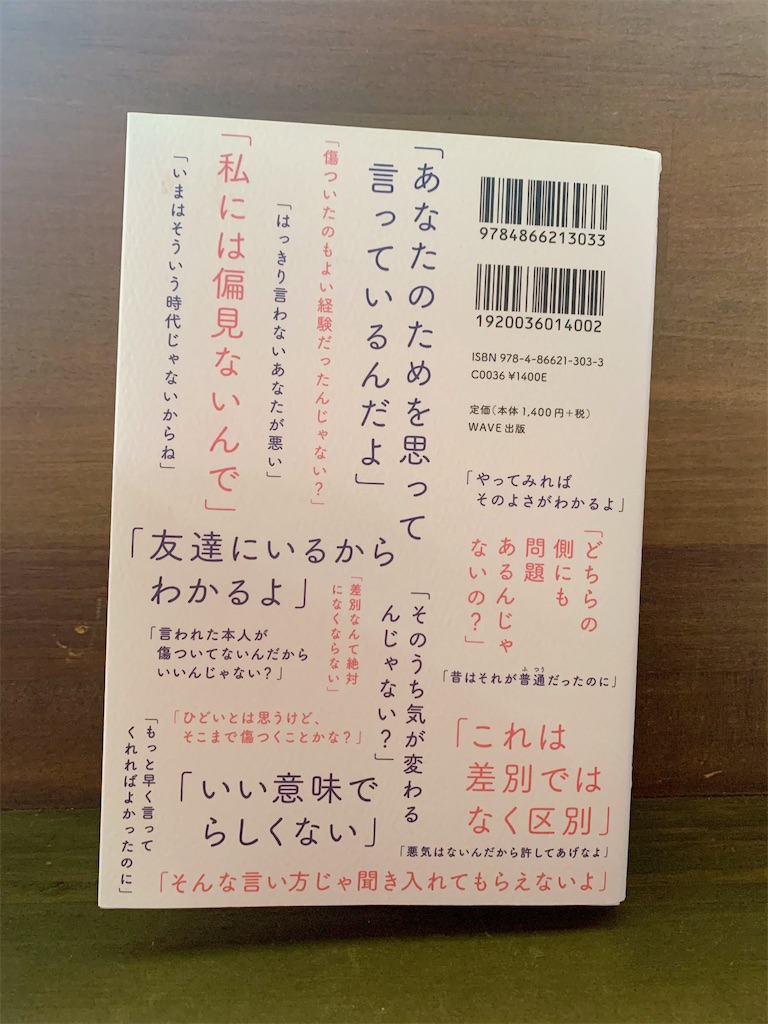 9784866213033
1920036014002
ISBN 978-4-86621-303-3
C0036 ¥1400E
定価(本体1,400円+税)
WAVE出版
「あなたのためを思って
言っているんだよ」
「傷ついたのもよい経験だったんじゃない?」
「はっきり言わないあなたが悪い」
「私には偏見ないんで」
「いまはそういう時代じゃないからね」
「やってみれば
そのよさがわかるよ」
「どちらの
側にも
問題
あるんじゃ
ないの?」
「友達にいるから
わかるよ」
「差別なんて絶対
になくならない」
「そのうち気が変わる
んじゃない?」
「言われた本人が
傷ついてないんだから
いいんじゃない?」
「昔はそれが普通だったのに」
ふつう
「ひどいとは思うけど、
そこまで傷つくことかな?」
「これは
差別では
なく区別」
「もっと早く言って
くれればよかったのに」
「いい意味で
らしくない」
「悪気はないんだから許してあげなよ」
「そんな言い方じゃ聞き入れてもらえないよ」